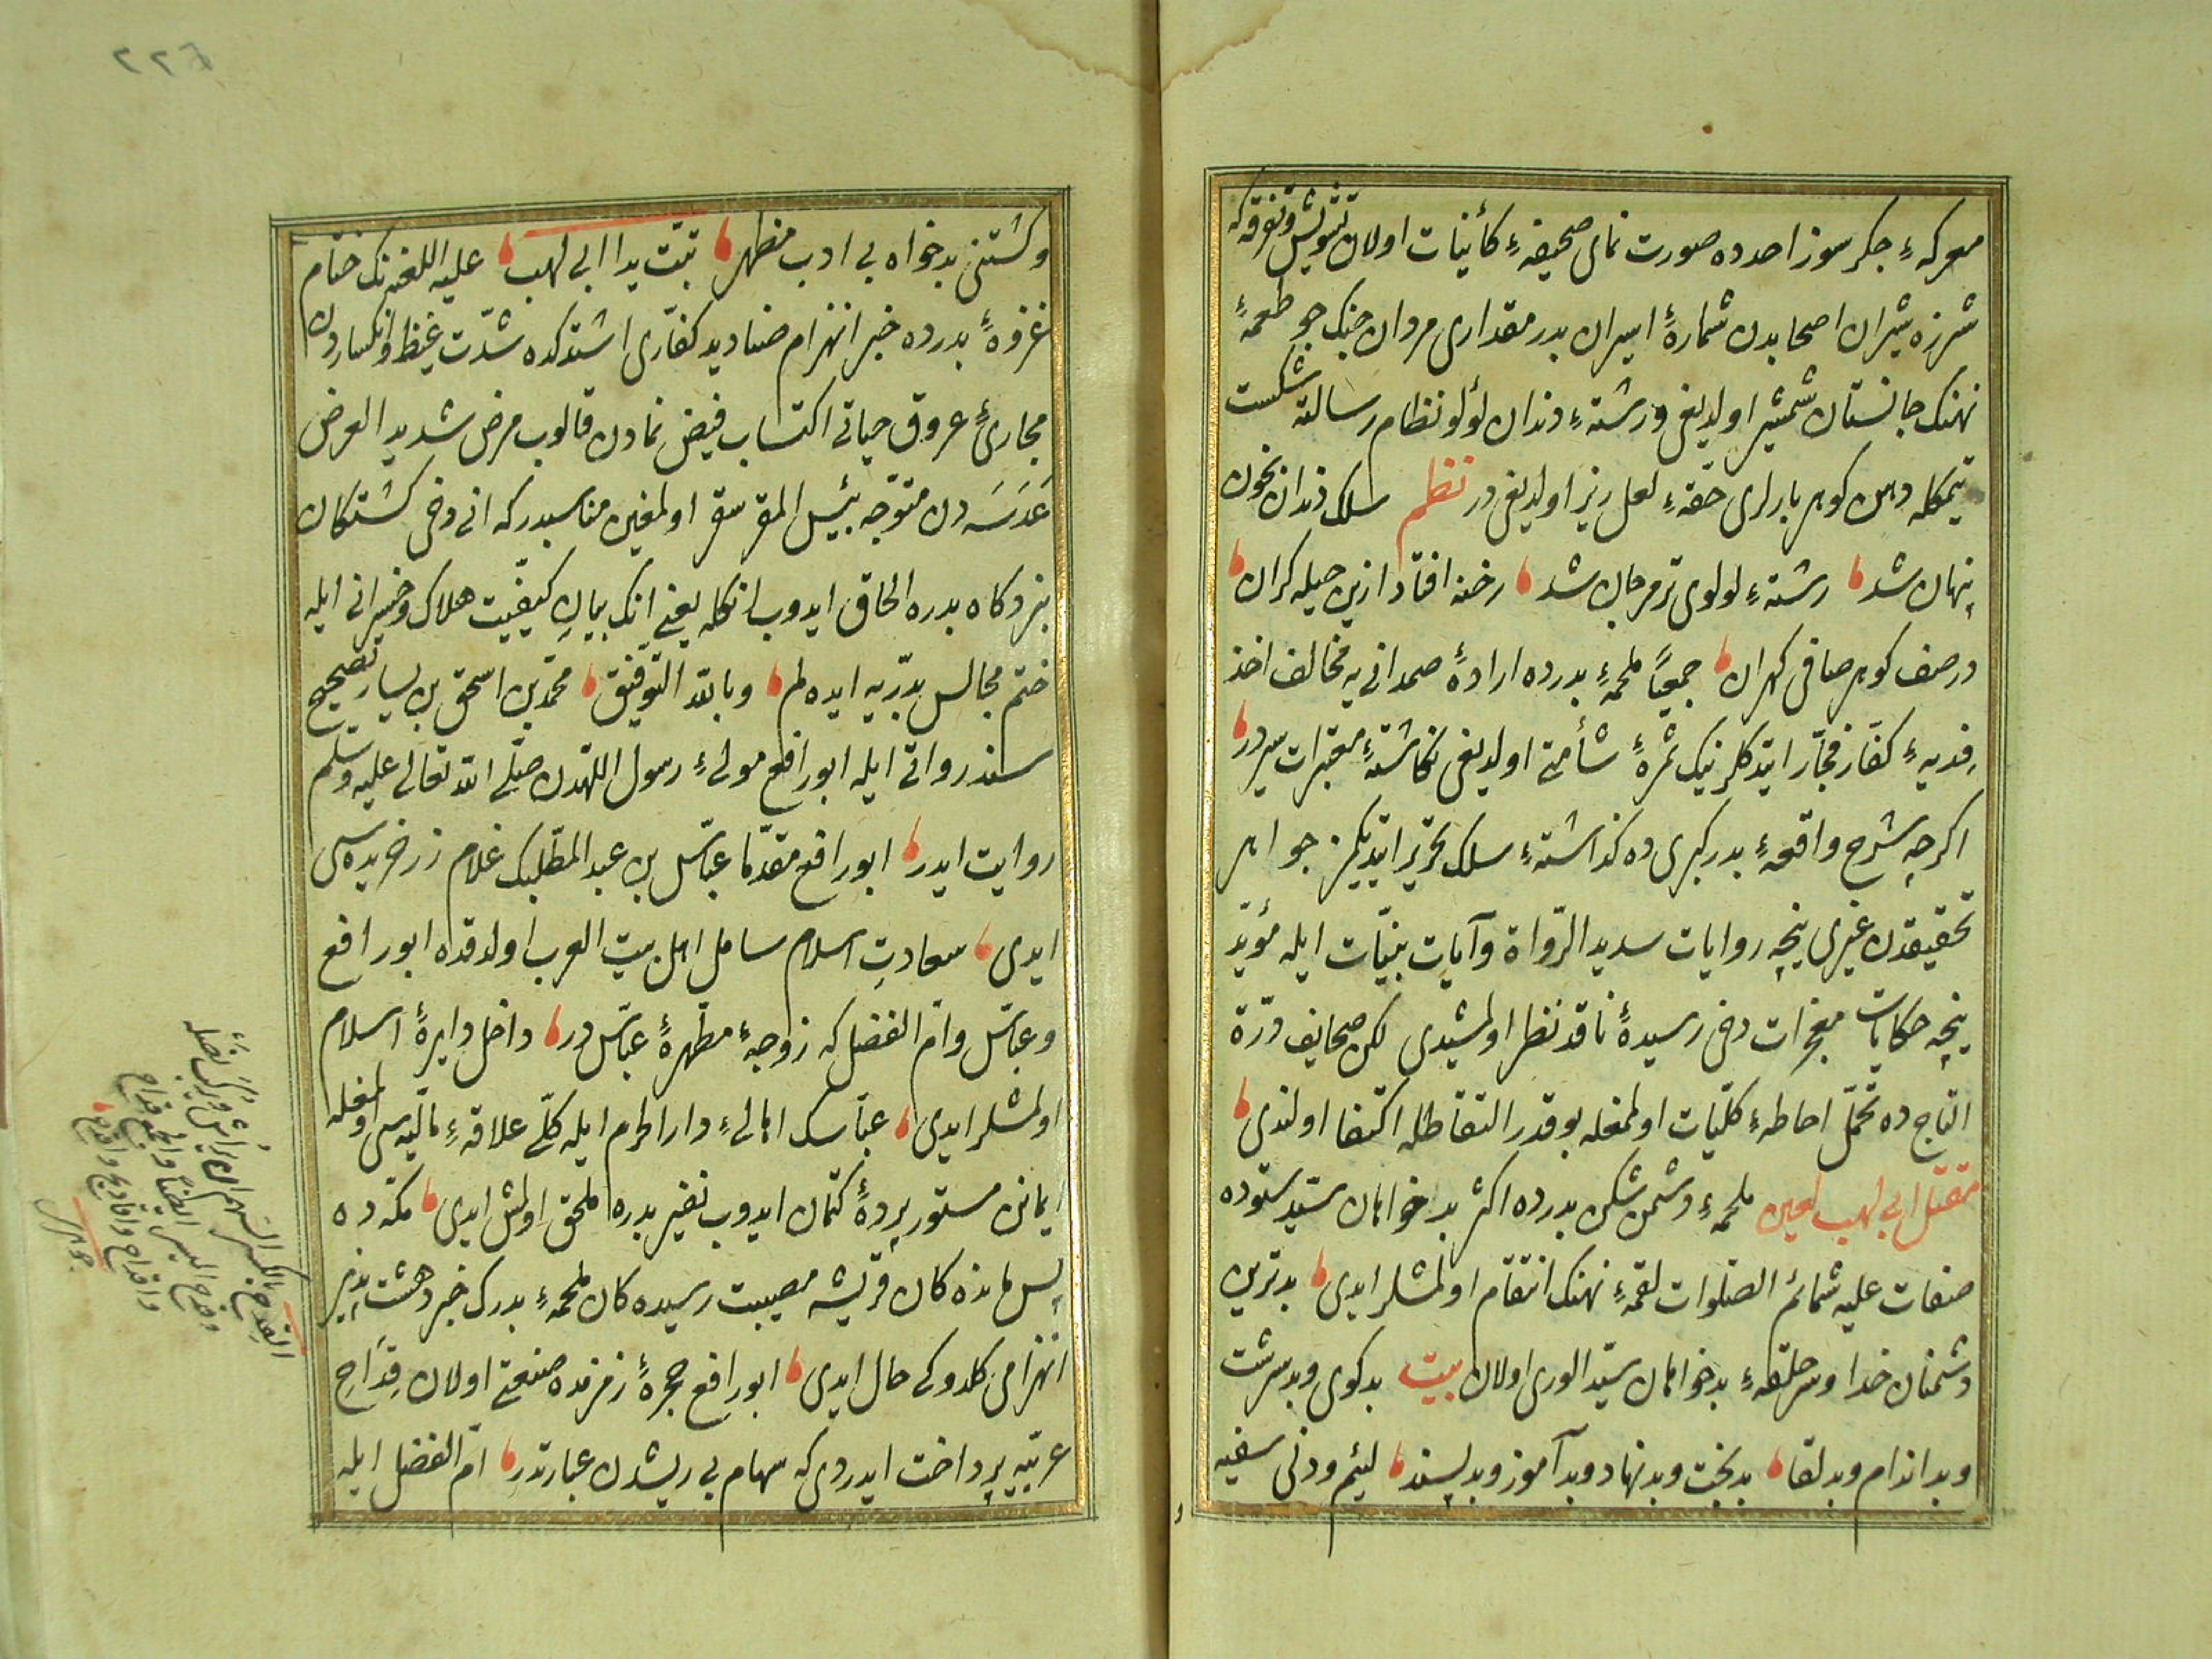 معركهٔ جكر سوز احدده صورت نمای صحیفهٔ كائینات اولان تشویش و تفرقه كه
شرزه شیران اصحابدن شمارهٔ اسیران بدر مقداری مردان جنك جو طعمهٔ
نهنك جانستان شمشیر اولدیغی و رشتهٔ دندان لؤلؤ نظام رسالته شكست
تیمكله دهن كوهر بارلری حقهٔ لعل ریز اولدیغی در نظم سلك دندان بخون
پنهان شد رشتهٔ لولوی تر مرجان شد رخنه افتاد ازین حیله كران
در صف كوهر صافی كهران جمیعًا ملحمهٔ بدرده ارادهٔ صمدانی یه مخالف اخذ
فدیهٔ كفار فجار ایتدكلرینك ثمرهٔ شأمتی اولدیغی نكاشتهٔ معتبرات سیر در
اكرچه شرح واقعهٔ بدر كبری ده كذاشتهٔ سلك تحریر ایتدیكمز جواهر
تحقیقدن غیری نیچه روایات سدید الرواة و آیات بینات ایله مؤید
نیچه حكایات معجزات دخی رسیدهٔ ناقد نظر اولمشیدی لكن صحایف درة
التاج ده تحمل احاطهٔ كلیات اولمغله بو قدر التقاطله اكتفا اولندی
مقتل ابی لهب لعین ملحمهٔ دشمن شكن بدرده اكثر بدخواهان سید ستوده
صفات علیه شمائم الصلوات لقمهٔ نهنك انتقام اولمشلر ایدی بدترین
دشمنان خدا و سر حلقهٔ بدخواهان سید الوری اولان بیت بدكوی و بدسرشت
و بداندام و بدلقا بدبخت و بدنهاد و بدآموز و بدپسند لئیم و دنی سفیه
و كشتنی بدخواه بی ادب مظهر تبت یدا ابی لهب علیه اللعنه نك ختام
غزوهٔ بدرده خبر انهزام صنادید كفاری اشتدكده شدت غیظ و انكساردن
مجاریٔ عروق حیاتی اكتساب فیض نمادن قالوب مرض شدید العرض
عدسه دن متوجه بئس المقر سقر اولمغین مناسبدر كه انی دخی كشتكان
نبردكاه بدره الحاق ایدوب انكله یعنی انك بیان كیفیت هلاك و خسرانی ایله
ختم مجالس بدریه ایده لم و بالله التوفیق محمد بن اسحق بن یسار تصحیح
سند روایتی ایله ابو رافع مولیٔ رسول اللهدن صلی الله تعالی علیه وسلم
روایت ایدر ابو رافع مقدما عباس بن عبد المطلبك غلام زر خریده سی
ایدی سعادت اسلام شامل اهل بیت العرب اولدقده ابو رافع
و عباس و ام الفضل كه زوجهٔ مطهرهٔ عباس در داخل دایرهٔ اسلام
اولمشلر ایدی عباسك اهالیٔ دار الحرم ایله كلی علاقهٔ مالیه سی اولمغله
ایمانن مستور پردهٔ كتمان ایدوب نفیر بدره ملحق اولمش ایدی مكه ده
پس مانده كان قریشه مصیبت رسیده كان ملحمهٔ بدرك خبر دهشت پذیر
انهزامی كلدوكی حال ایدی ابو رافع حجرهٔ زمزمده صنعتی اولان قداح
عربیه پرداخت ایدردی كه سهام بی ریشدن عبارتدر ام الفضل ایله
القدح بالكسر السهم قبل ان یراش و یركب نصله
وقدح المیسر ایضا والجمع قداح
واقداح واقادیح
جوهری